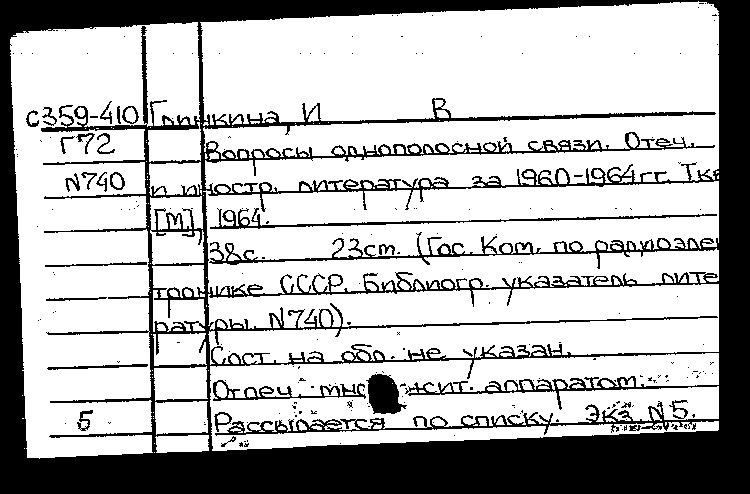 С359-410 Глинкина, И В
Г72 Вопросы однополосной связи. Отеч.
N740 и иностр. литература за 1960-1964гг.
[М], 1964.
38с. 23см. (Гос. Ком. по радиоэлек
тронике СССР. Библиогр. указатель лите
ратуры. N740).
Сост. на обл. не указан.
Отпеч. аппаратом.
5 Рассылается по списку. Экз. N5.